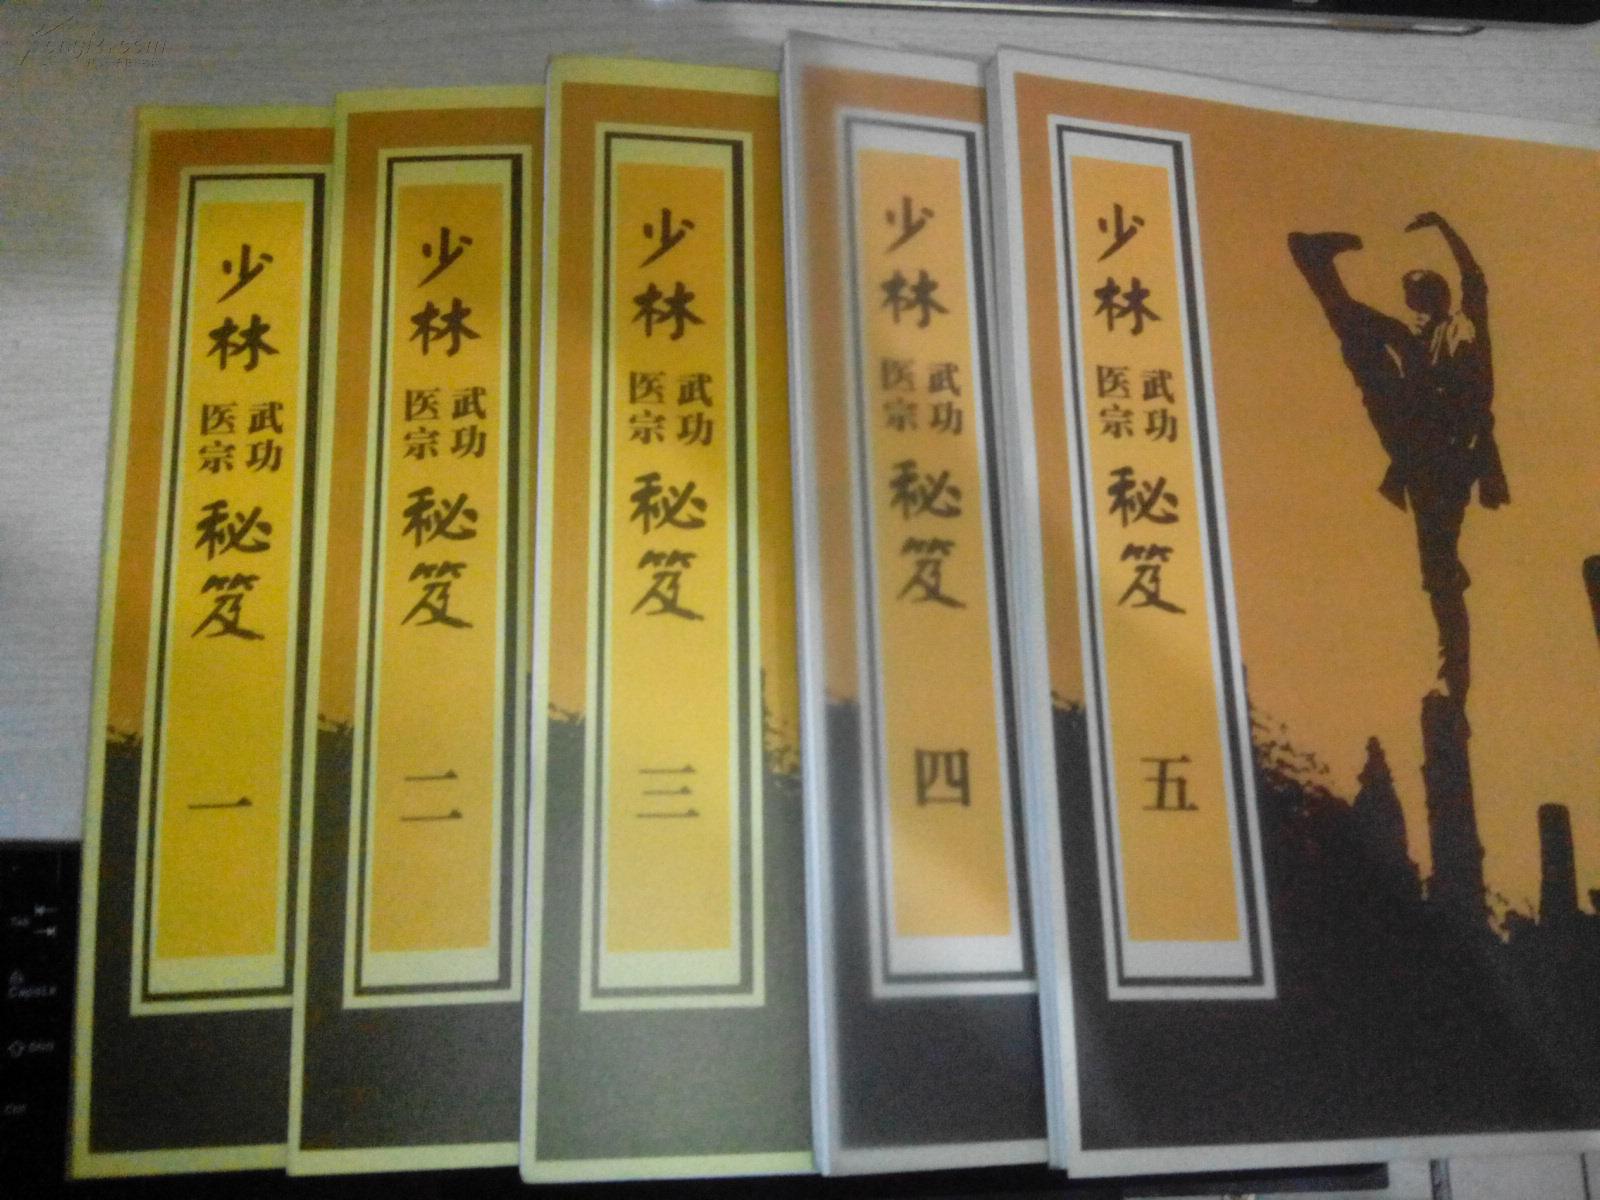 少林武功医宗秘笈
一
少林武功医宗秘笈
二
少林武功医宗秘笈
三
少林武功医宗秘笈
四
少林武功医宗秘笈
五
Tab
Capslk